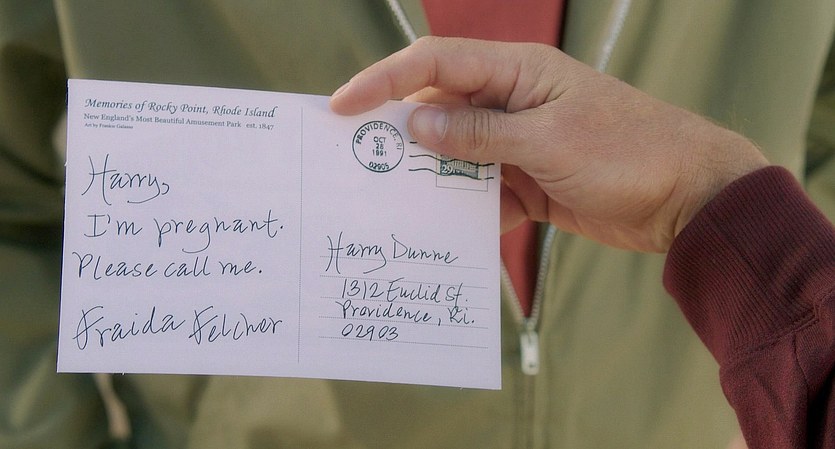 Memories of Rocky Point, Rhode Island
New England's Most Beautiful Amusement Park est. 1847
Art by Frankie Galasso
Harry,
I'm pregnant.
Please call me.
Fraida Felcher
PROVIDENCE, RI
OCT
28
1991
02905
29
Harry Dunne
1312 Euclid St.
Providence, Ri.
02903